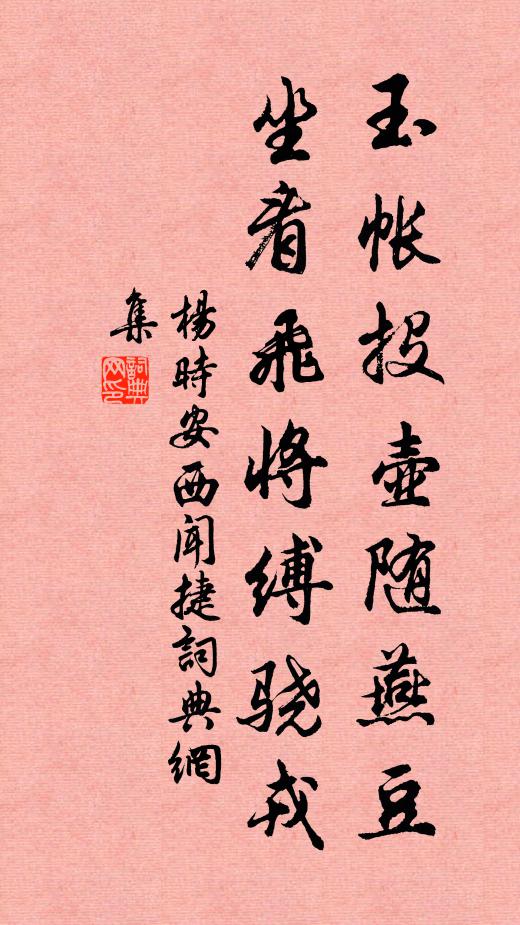 玉帐投壶随燕豆
坐看飞将缚骁戎
杨时安西闻捷词典网
集
词典网印